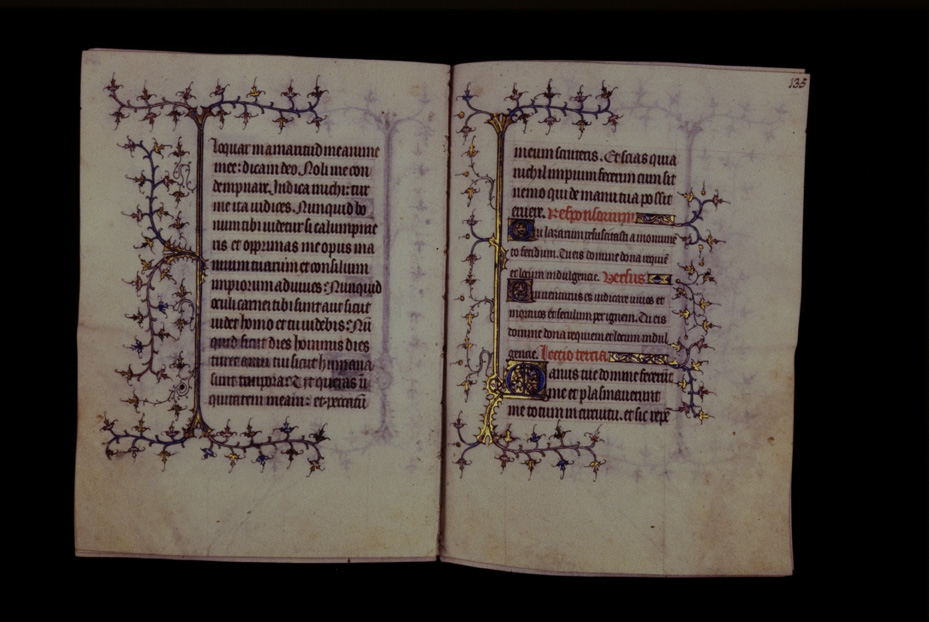 loquar in amaritud meanime
mee: dicam deo. Noli me con
dempnare. Judica michi: cur
me ita iudices. Nunquid bo
num tibi videtur si calumpnie
ris et opprimas me opus ma
nuum tuarum et consilium
impiorum adiuves: Nunquid
oculi carnei tibi sunt aut sicut
videt homo et tu videbis: Nū
quid sicut dies hominis dies
tui et anni tui sicut humana
sunt tempora: Ut queras ī
quitatem meam: et peccatū
135
meum scruteris. Et scias quia
nichil impium fecerim cum sit
nemo qui de manu tua possit
eruere. Responsorium
Qui lazarum resuscitasti a monumē
to fetidum. Tu eis domine dona requiē
et locum indulgencie. Versus
Qui venturus es iudicare vivos et
mortuos et seculum per ignem. Tu eis
domine dona requiem et locum indul
gencie. Lectio tercia
Manus tue domine fecerūt
me et plasmaverunt
me totum in circuitu. et sic repē